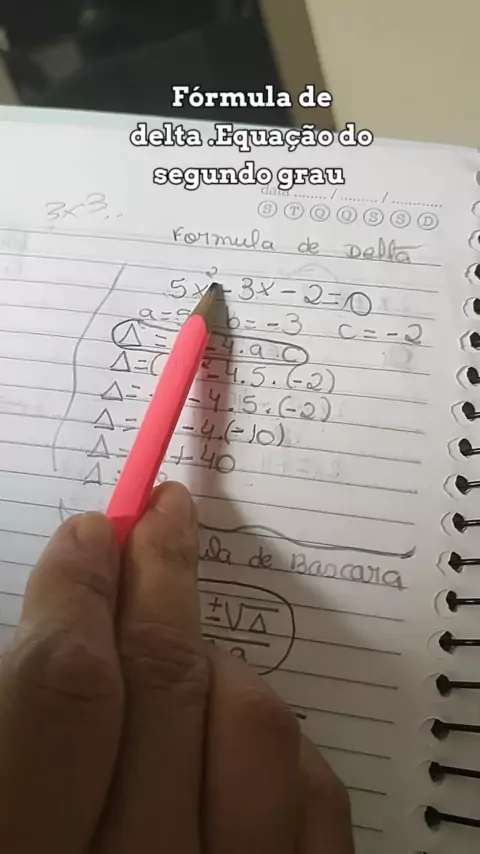 Fórmula de
delta .Equação do
segundo grau
data ......../......../............
S T Q Q S S D
3x3..
Formula de Delta
5x² - 3x - 2 = 0
a = b = -3 c = -2
Δ = - 4.a.c
Δ = ( ² - 4.5.(-2)
Δ = - 4.5.(-2)
Δ = - 4.(-10)
Δ = + 40
Δ =
de Bascara
± √Δ
a